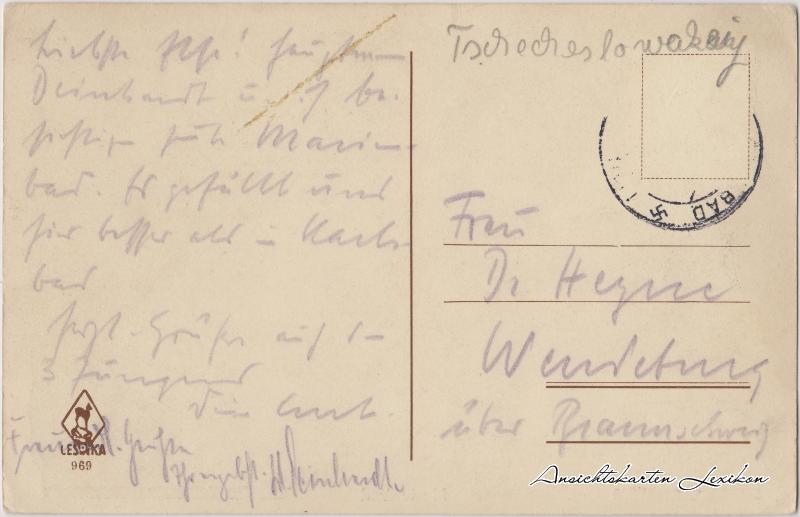 Liebste Ilse! Hauptm.
Deinhardt u. ich be-
sichtigen heute Marien-
bad. Es gefällt uns
hier besser als in Karls-
bad
Herzl. Grüße auf
3 Jungens
Dein
Grüße
Deinhardt
LESWKA
969
Tschechoslowakei
BAD
Frau
Dr Heyne
Wendeburg
über Braunschweig
Ansichtskarten Lexikon